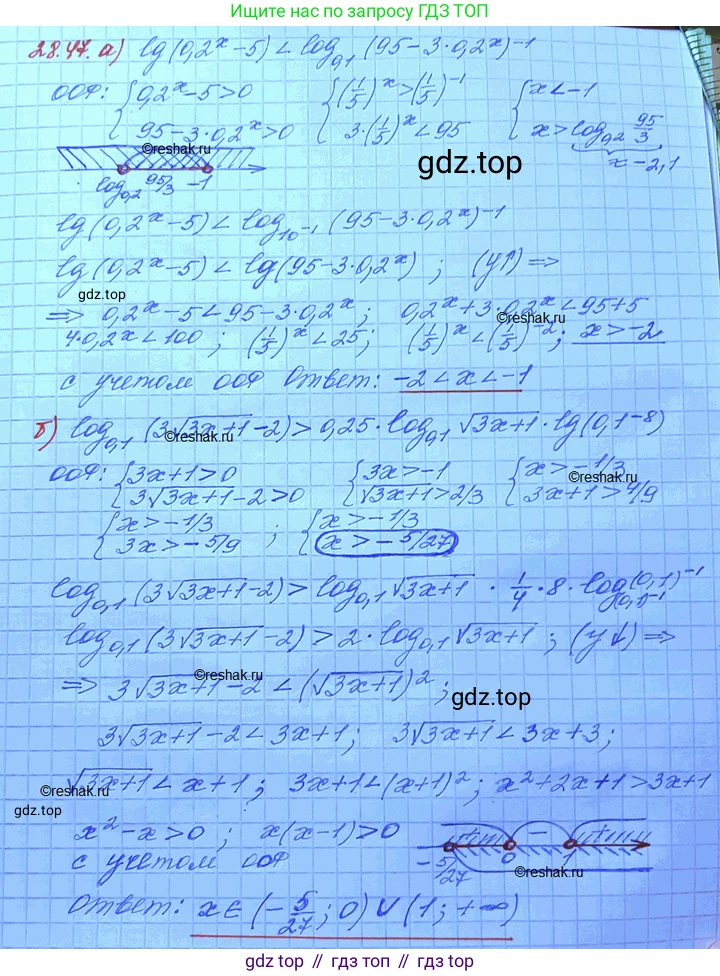 Ищите нас по запросу ГДЗ ТОП
28.47. а) lg(0,2^x – 5) < log_0,1 (95 – 3·0,2^x)^–1
ООФ: { 0,2^x – 5 > 0 { (1/5)^x > (1/5)^–1 { x < –1
95 – 3·0,2^x > 0 3·(1/5)^x < 95 x > log_0,2 95/3
©reshak.ru
gdz.top
x – 2,1
log_0,2 95/3 –1
lg(0,2^x – 5) < log_10^–1 (95 – 3·0,2^x)^–1
lg(0,2^x – 5) < lg(95 – 3·0,2^x) ; (y↑) ⇒
gdz.top
⇒ 0,2^x – 5 < 95 – 3·0,2^x ; 0,2^x + 3·0,2^x < 95 + 5
©reshak.ru
4·0,2^x < 100 ; (1/5)^x < 25 ; (1/5)^x < (1/5)^–2 ; x > –2
с учетом ООФ Ответ: –2 < x < –1
б) log_0,1 (3√3x+1 – 2) > 0,25 · log_0,1 √3x+1 · lg(0,1^–8)
©reshak.ru
ООФ: { 3x+1 > 0 { 3x > –1 { x > –1/3
3√3x+1 – 2 > 0 √3x+1 > 2/3 3x+1 > 4/9
©reshak.ru
{ x > –1/3 ; { x > –1/3
3x > –5/9 x > –5/27
log_0,1 (3√3x+1 – 2) > log_0,1 √3x+1 · 1/4 · 8 · log_(0,1)^–1 (0,1)^–1
log_0,1 (3√3x+1 – 2) > 2 · log_0,1 √3x+1 ; (y↓) ⇒
©reshak.ru
⇒ 3√3x+1 – 2 < (√3x+1)^2 ;
gdz.top
3√3x+1 – 2 < 3x+1 ; 3√3x+1 < 3x+3 ;
©reshak.ru
√3x+1 < x+1 ; 3x+1 < (x+1)^2 ; x^2+2x+1 > 3x+1
gdz.top
x^2 – x > 0 ; x(x–1) > 0 + – +
с учетом ООФ –5/27 0 1
©reshak.ru
Ответ: x ∈ (–5/27 ; 0) ∪ (1 ; +∞)
gdz.top // гдз топ // гдз.топ